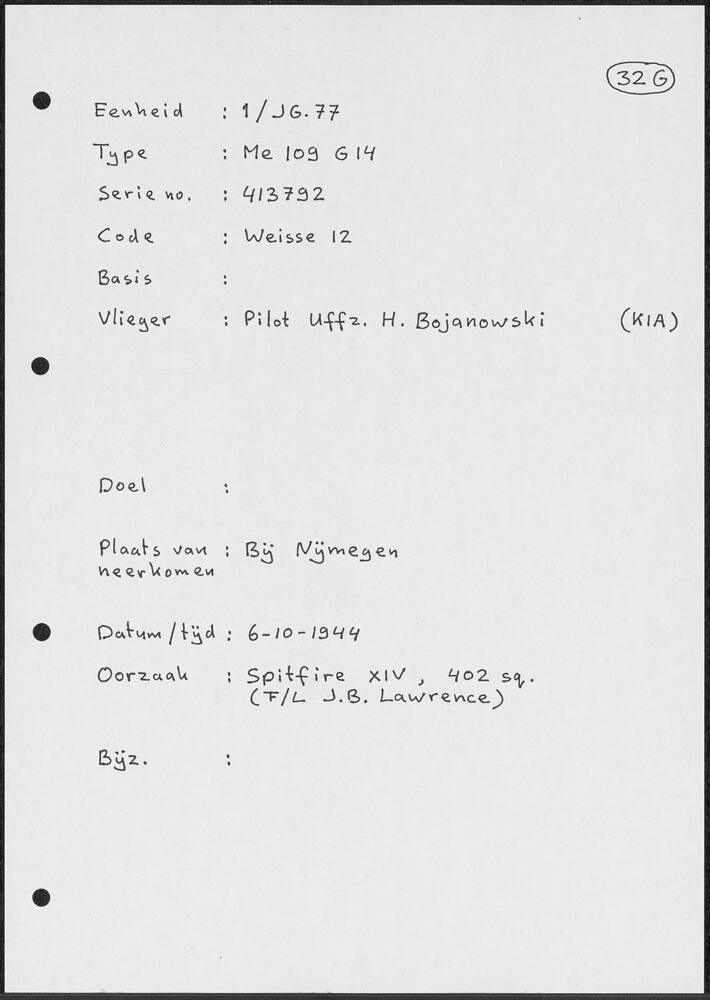 32 G
Eenheid : 1/JG.77
Type : Me 109 G14
Serie no. : 413792
Code : Weisse 12
Basis :
Vlieger : Pilot Uffz. H. Bojanowski (KIA)
Doel :
Plaats van : Bij Nijmegen
neerkomen
Datum/tijd : 6-10-1944
Oorzaak : Spitfire XIV, 402 sq.
(F/L J.B. Lawrence)
Bijz. :